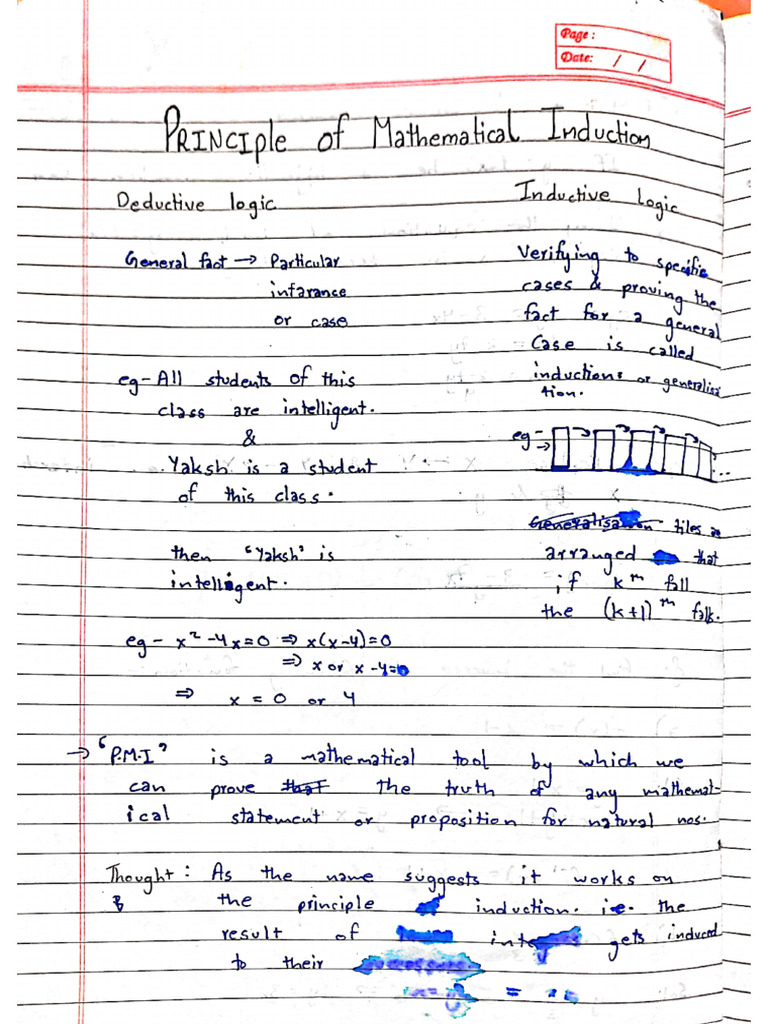 Page :
Date: / /
PRINCIPle of Mathematical Induction
Deductive logic
General fact → Particular
infarance
or case
eg- All students of this
class are intelligent.
&
Yaksh is a student
of this class.
then "Yaksh" is
intelligent.
eg- x² -4x=0 ⇒ x(x-4)=0
⇒ x or x-4=0
⇒ x = 0 or 4
Inductive logic
Verifying to specific
cases & proving the
fact for a general
Case is called
induction: or generalisa
tion.
eg-
→
...
Generalisation tiles
arranged that
if kᵗʰ fall
the (k+1)ᵗʰ falls.
→ "P.M.I" is a mathematical tool by which we
can prove that the truth of any mathemat-
ical statement or proposition for natural nos.
Thought : As the name suggests it works on
the principle induction. i.e. the
result of gets induced
to their
=